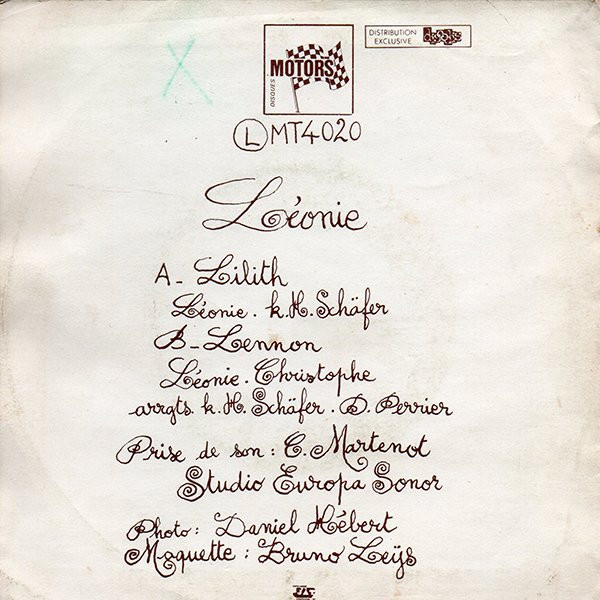 DISQUES
MOTORS
DISTRIBUTION
EXCLUSIVE
discodis
Ⓛ MT4020
Léonie
A - Lilith
Léonie. k.H. Schäfer
B - Lennon
Léonie. Christophe
arrgts. k.H. Schäfer. D. Perrier
Prise de son : C. Martenot
Studio Europa Sonor
Photo : Daniel Hébert
Maquette : Bruno Leÿs